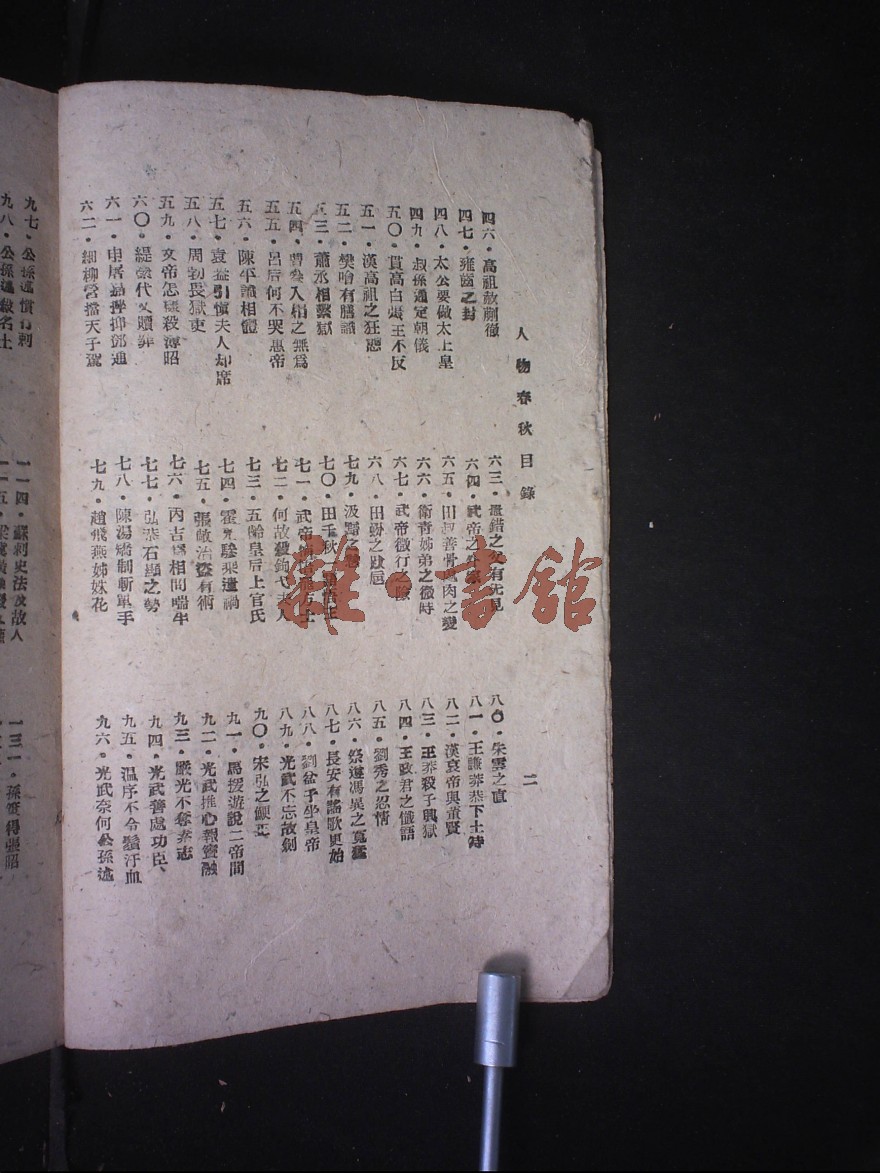 人物春秋目錄
二
四六・高祖赦蒯徹
四七・雍齒之封
四八・太公要做太上皇
四九・叔孫通定朝儀
五〇・貫高白張王不反
五一・漢高祖之狂態
五二・樊噲有膽識
五三・蕭丞相繫獄
五四・曹參入相之無爲
五五・呂后何不哭惠帝
五六・陳平識相體
五七・袁盎引愼夫人却席
五八・周勃畏獄吏
五九・文帝怎樣殺薄昭
六〇・緹縈代父贖罪
六一・申屠嘉挫抑鄧通
六二・細柳營擋天子駕
六三・鼂錯之父有先見
六四・武帝之
六五・田叔善骨肉之變
六六・衛青姊弟之微時
六七・武帝微行之
六八・田蚡之跋扈
七九・汲黯之
七〇・田千秋
七一・武帝方士
七二・何故殺鉤弋夫人
七三・五齡皇后上官氏
七四・霍光驂乘遺禍
七五・張敞治盜有術
七六・丙吉爲相問喘牛
七七・弘恭石顯之勢
七八・陳湯矯制斬單于
七九・趙飛燕姊妹花
八〇・朱雲之直
八一・王謙莽恭下士時
八二・漢哀帝與董賢
八三・王莽殺子興獄
八四・王政君之懺語
八五・劉秀之忍情
八六・祭遵馮異之寬猛
八七・長安有謠歌更始
八八・劉盆子坐皇帝
八九・光武不忘故劍
九〇・宋弘之鯁正
九一・馬援遊說二帝間
九二・光武推心報竇融
九三・嚴光不奪素志
九四・光武善處功臣、
九五・温序不令鬚汙血
九六・光武奈何公孫述
九七・公孫述慣行刺
九八・公孫述殺名士
一一四・蘇刺史法及故人
一三一・孫策得張昭
雜・書館